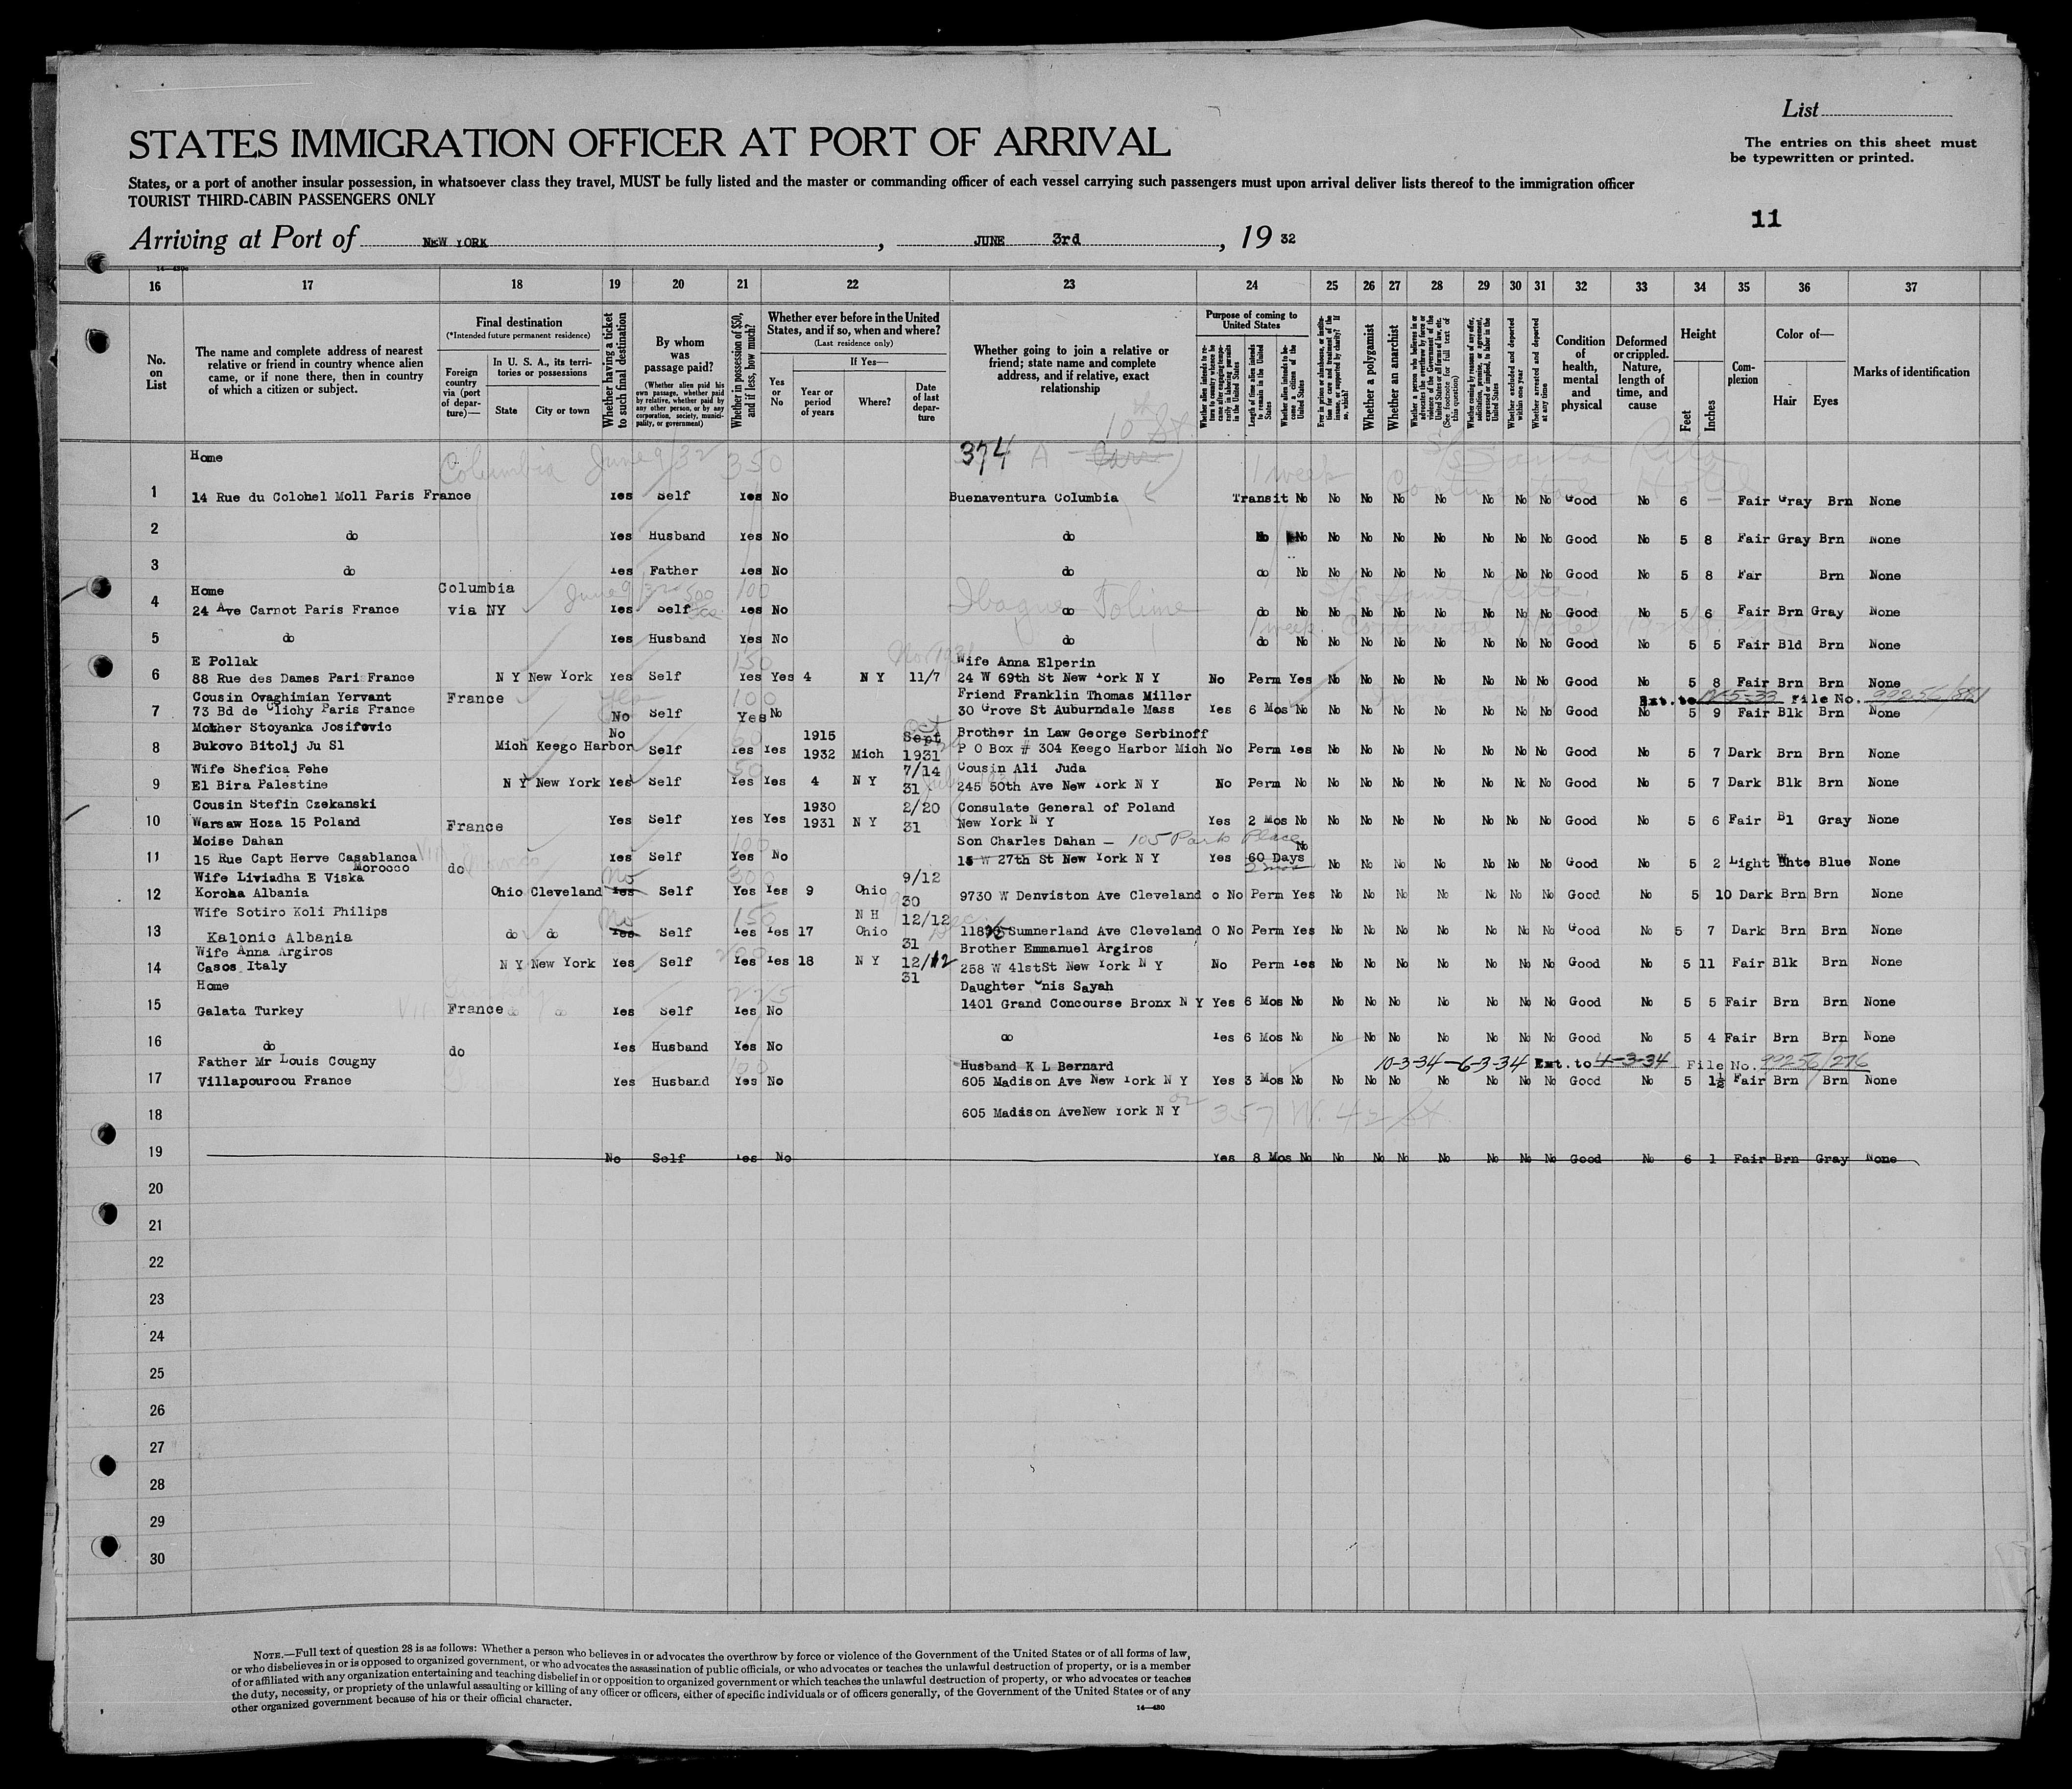 List
The entries on this sheet must
be typewritten or printed.
STATES IMMIGRATION OFFICER AT PORT OF ARRIVAL
States, or a port of another insular possession, in whatsoever class they travel, MUST be fully listed and the master or commanding officer of each vessel carrying such passengers must upon arrival deliver lists thereof to the immigration officer
TOURIST THIRD-CABIN PASSENGERS ONLY
11
Arriving at Port of NEW YORK, JUNE 3rd, 19 32
16 17 18 19 20 21 22 23 24 25 26 27 28 29 30 31 32 33 34 35 36 37
No. on List
The name and complete address of nearest relative or friend in country whence alien came, or if none there, then in country of which a citizen or subject.
Final destination
(*Intended future permanent residence)
Foreign country via (port of departure)—
In U. S. A., its territories or possessions
State City or town
Whether having a ticket to such final destination
By whom was passage paid?
(Whether alien paid his own passage, whether paid by relative, whether paid by any other person, or by any corporation, society, municipality, or government)
Whether in possession of $50, and if less, how much?
Whether ever before in the United States, and if so, when and where?
(Last residence only)
Yes or No
If Yes—
Year or period of years
Where?
Date of last departure
Whether going to join a relative or friend; state name and complete address, and if relative, exact relationship
Purpose of coming to United States
Length of time alien intends to remain in the United States
Whether alien intends to become a citizen of the United States
Whether a polygamist
Whether an anarchist
(See footnote for full text of this question)
Whether excluded and deported within one year
Whether arrested and deported at any time
Condition of health, mental and physical
Deformed or crippled. Nature, length of time, and cause
Height
Feet Inches
Complexion
Color of—
Hair Eyes
Marks of identification
Home Columbia June 9/32 350 374 A 10th St. 1 week S/S Santa Rita
1 14 Rue du Colohel Moll Paris France Yes Self Yes No Buenaventura Columbia Transit No No No No No No No No Good No 6 Fair Gray Brn None
2 do Yes Husband Yes No do No No No No No No No No No Good No 5 8 Fair Gray Brn None
3 do Yes Father Yes No do do No No No No No No No No Good No 5 8 Far Brn None
Home Columbia June 9/32 500 100 Ibague Tolima S/S Santa Rita
4 24 Ave Carnot Paris France via NY Yes Self Yes No do do No No No No No No No No Good No 5 6 Fair Brn Gray None
1 week Continental Hotel
5 do Yes Husband Yes No do do No No No No No No No No Good No 5 5 Fair Bld Brn None
E Pollak 150 Nov 1931 Wife Anna Elperin
6 88 Rue des Dames Pari France N Y New York Yes Self Yes Yes 4 N Y 11/7 24 W 69th St New York N Y No Perm Yes No No No No No No No Good No 5 8 Fair Brn Brn None
Cousin Ovaghimian Yervant France Yes 100 Friend Franklin Thomas Miller Ext. to 12-5-33 File No. 99256/881
7 73 Bd de Clichy Paris France No Self Yes No 30 Grove St Auburndale Mass Yes 6 Mos No No No No No No No No Good No 5 9 Fair Blk Brn None
Mother Stoyanka Josifovic No 1915 Sept Oct Brother in Law George Serbinoff
8 Bukovo Bitolj Ju Sl Mich Keego Harbor Self Yes Yes 1932 Mich 1931 P O Box # 304 Keego Harbor Mich No Perm Yes No No No No No No No Good No 5 7 Dark Brn Brn None
Wife Shefica Fehe 50 7/14 Cousin Ali Juda
9 El Bira Palestine N Y New York Yes Self Yes Yes 4 N Y 31 245 50th Ave New York N Y No Perm No No No No No No No No Good No 5 7 Dark Blk Brn None
Cousin Stefin Czekanski 1930 2/20 Consulate General of Poland
10 Warsaw Hoza 15 Poland France Yes Self Yes Yes 1931 N Y 31 New York N Y Yes 2 Mos No No No No No No No No Good No 5 6 Fair Bl Gray None
Moise Dahan 100 Son Charles Dahan — 105 Park Place No
11 15 Rue Capt Herve Casablanca Morocco do Yes Self Yes No 15 W 27th St New York N Y Yes 60 Days No No No No No No No Good No 5 2 Light Whte Blue None
Wife Liviadha E Viska No 300 9/12
12 Korcha Albania Ohio Cleveland Yes Self Yes Yes 9 Ohio 30 9730 W Denviston Ave Cleveland o No Perm Yes No No No No No No No Good No 5 10 Dark Brn Brn None
Wife Sotiro Koli Philips No 150 N H 12/12
13 Kalonic Albania do do Yes Self Yes Yes 17 Ohio 31 Sumnerland Ave Cleveland O No Perm Yes No No No No No No No Good No 5 7 Dark Brn Brn None
Wife Anna Argiros Brother Emmanuel Argiros
14 Casos Italy N Y New York Yes Self Yes Yes 18 N Y 12/12 31 258 W 41stSt New York N Y No Perm Yes No No No No No No No Good No 5 11 Fair Blk Brn None
Home 225 Daughter Unis Sayah
15 Galata Turkey France do do Yes Self Yes No 1401 Grand Concourse Bronx N Y Yes 6 Mos No No No No No No No No Good No 5 5 Fair Brn Brn None
16 do do Yes Husband Yes No do Yes 6 Mos No No No No No No No No Good No 5 4 Fair Brn Brn None
Father Mr Louis Cougny 100 Husband K L Bernard 10-3-34—6-3-34 Ext. to 4-3-34 File No. 99256/276
17 Villapourcou France Yes Husband Yes No 605 Madison Ave New York N Y Yes 3 Mos No No No No No No No No Good No 5 1½ Fair Brn Brn None
18 605 Madison AveNew York N Y or 357 W. 42 St.
19 No Self Yes No Yes 8 Mos No No No No No No No No Good No 6 1 Fair Brn Gray None
20
21
22
23
24
25
26
27
28
29
30
NOTE.—Full text of question 28 is as follows: Whether a person who believes in or advocates the overthrow by force or violence of the Government of the United States or of all forms of law,
or who disbelieves in or is opposed to organized government, or who advocates the assassination of public officials, or who advocates or teaches the unlawful destruction of property, or is a member
of or affiliated with any organization entertaining and teaching disbelief in or opposition to organized government or which teaches the unlawful destruction of property, or who advocates or teaches
the duty, necessity, or propriety of the unlawful assaulting or killing of any officer or officers, either of specific individuals or of officers generally, of the Government of the United States or of any
other organized government because of his or their official character.
14—430